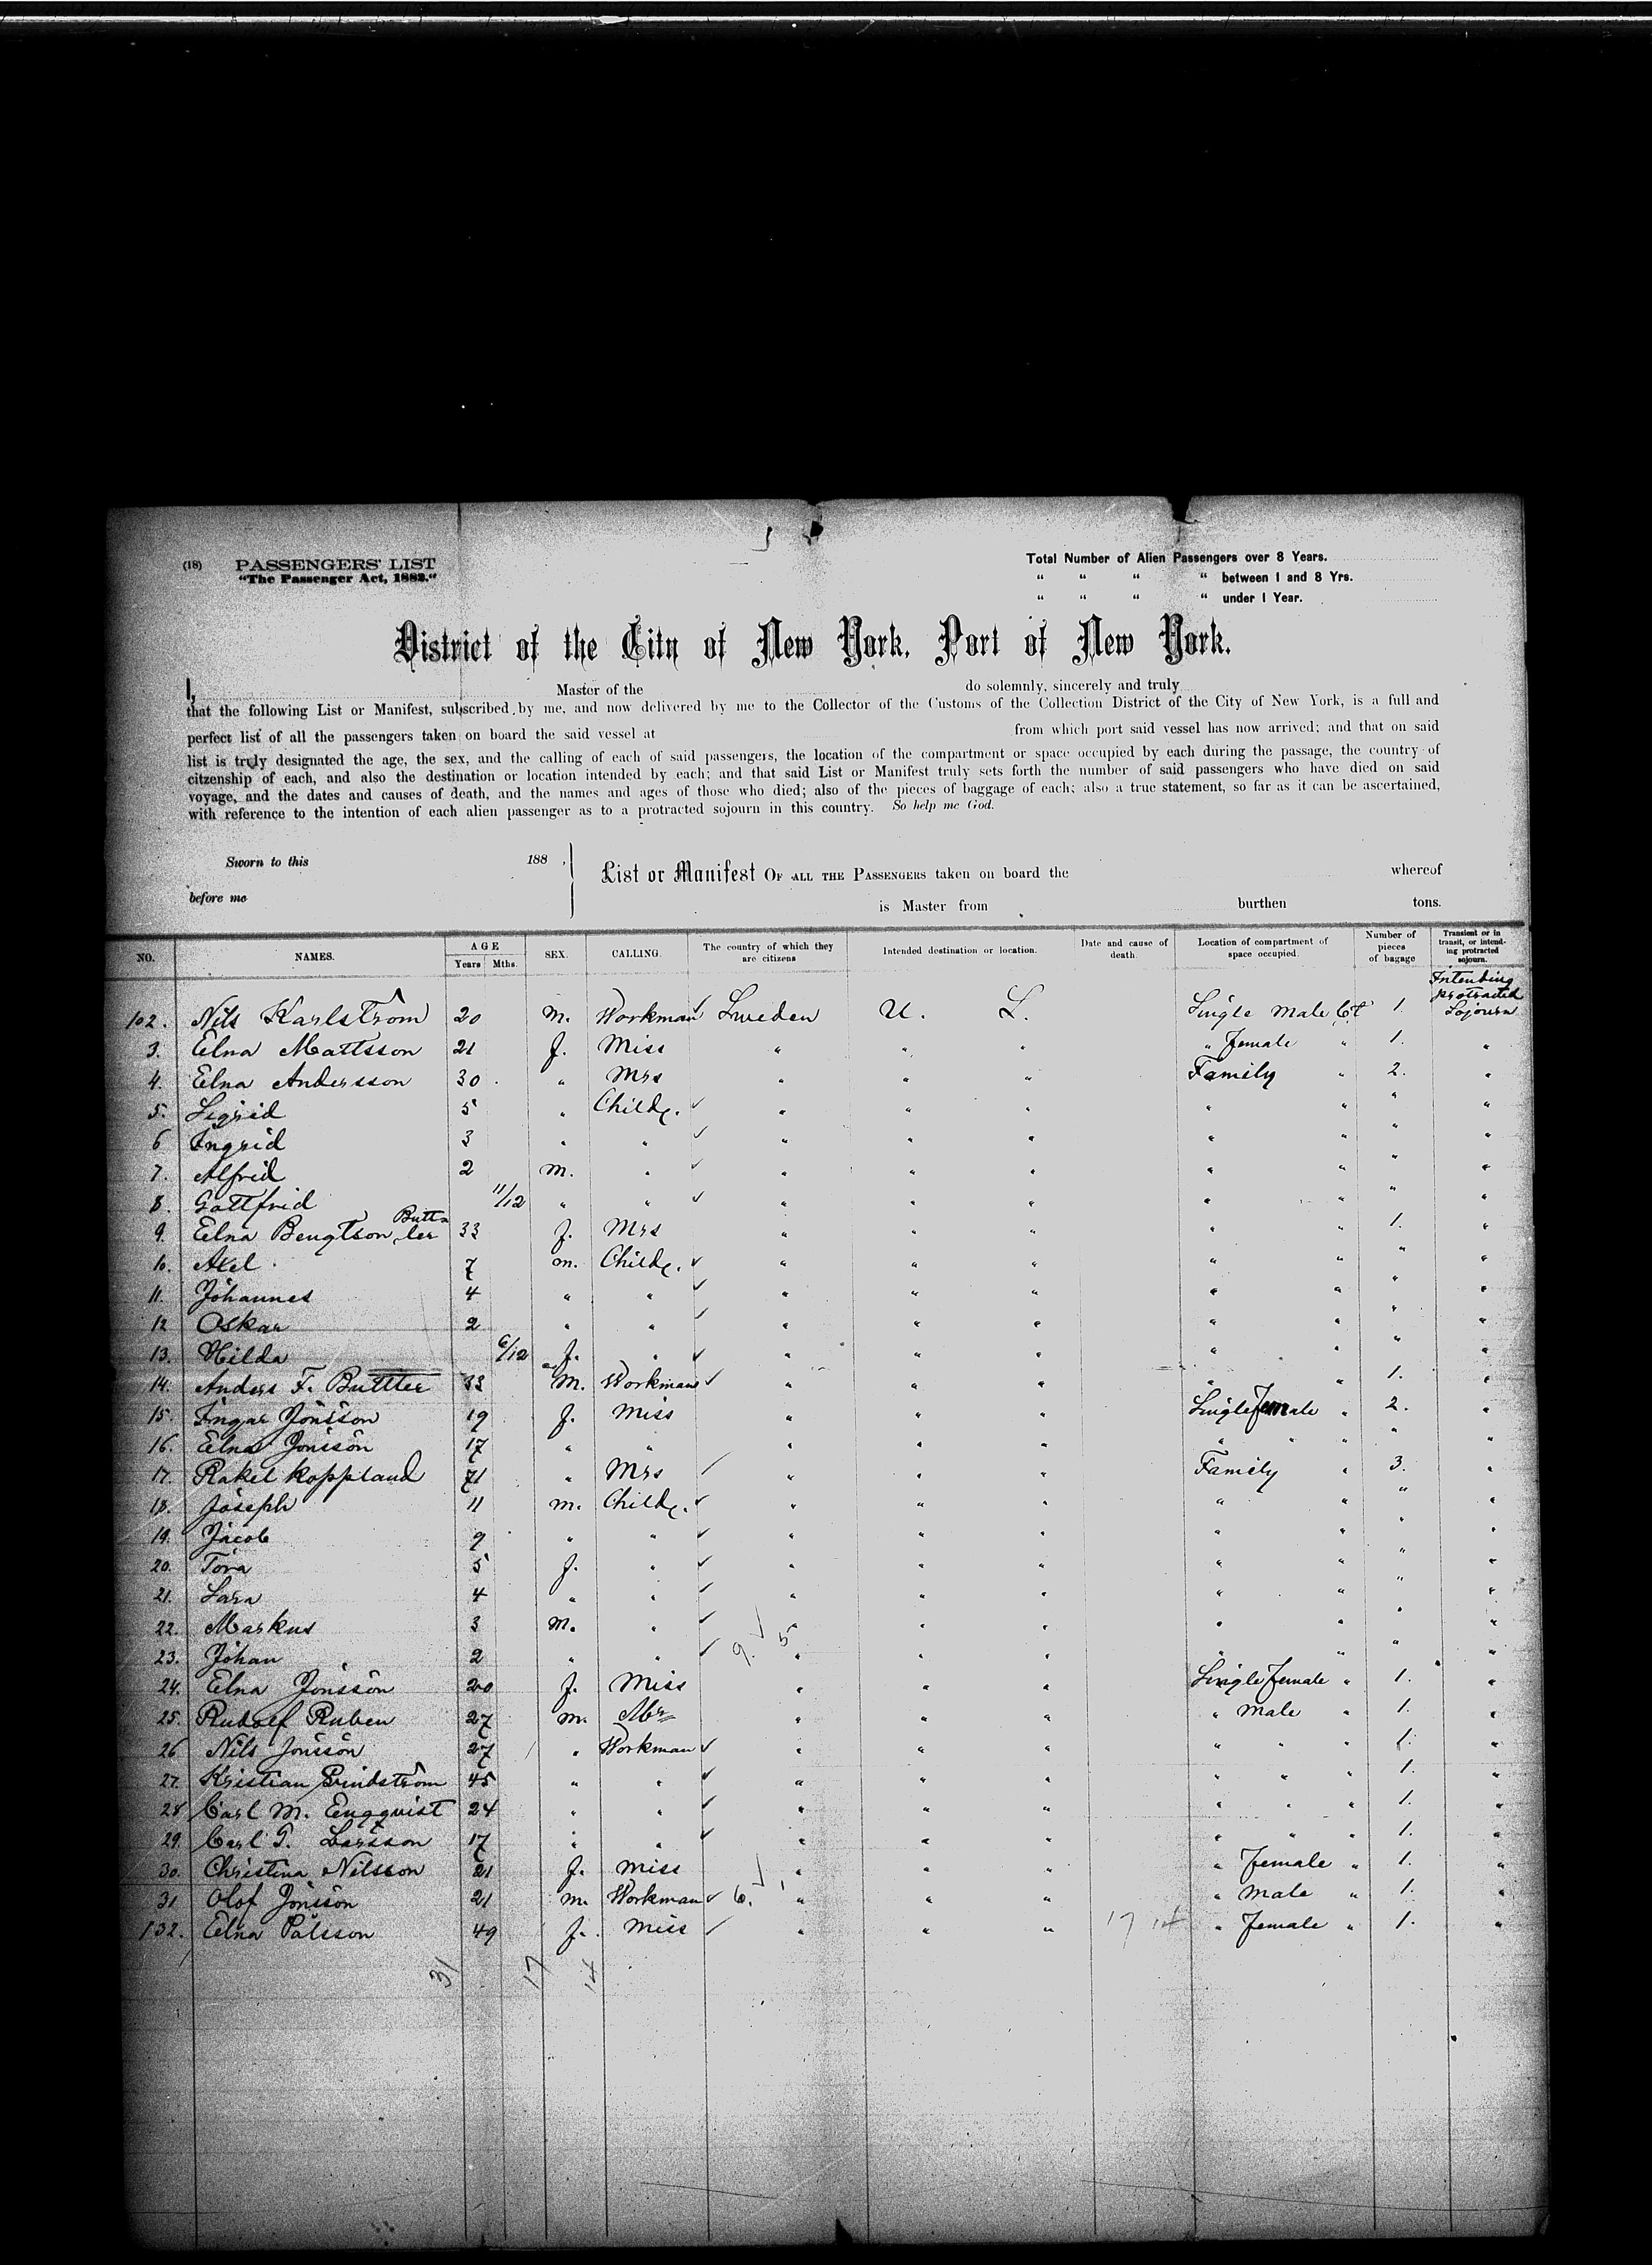 (18) PASSENGERS' LIST
"The Passenger Act, 1882."
Total Number of Alien Passengers over 8 Years.
" " " " between 1 and 8 Yrs.
" " " " under 1 Year.
District of the City of New York, Port of New York.
I, Master of the do solemnly, sincerely and truly
that the following List or Manifest, subscribed by me, and now delivered by me to the Collector of the Customs of the Collection District of the City of New York, is a full and
perfect list of all the passengers taken on board the said vessel at from which port said vessel has now arrived; and that on said
list is truly designated the age, the sex, and the calling of each of said passengers, the location of the compartment or space occupied by each during the passage, the country of
citzenship of each, and also the destination or location intended by each; and that said List or Manifest truly sets forth the number of said passengers who have died on said
voyage, and the dates and causes of death, and the names and ages of those who died; also of the pieces of baggage of each; also a true statement, so far as it can be ascertained,
with reference to the intention of each alien passenger as to a protracted sojourn in this country. So help me God.
Sworn to this 188 ,
before me
List or Manifest OF ALL THE PASSENGERS taken on board the whereof
is Master from burthen tons.
NO. NAMES. AGE Years Mths. SEX. CALLING. The country of which they are citizens Intended destination or location. Date and cause of death. Location of compartment of space occupied. Number of pieces of bagage Transient or in transit, or intending protracted sojourn.
Intending protracted Sojourn
102. Nils Karlström 20 m. Workman Sweden U. S. Single male Ct 1.
3. Elna Mattsson 21 f. Miss " " " " female " 1. "
4. Elna Andersson 30 " Mrs " " " Family " 2. "
5. Sigrid 5 " Childr. " " " " " " "
6 Ingrid 3 " " " " " " " " "
7. Alfrid 2 m. " " " " " " " "
8. Gottfrid 11/12 " " " " " " " " "
9. Elna Bengtson Buttler 33 f. Mrs " " " " " 1. "
10. Axel 7 m. Childr. " " " " " " "
11. Johannes 4 " " " " " " " " "
12 Oskar 2 " " " " " " " " "
13. Hilda 6/12 f. " " " " " " " "
14. Anders F. Buttler 33 m. Workman " " " " " 1. "
15. Ingar Jönsson 19 f. Miss " " " Single female " 2. "
16. Elna Jönsson 17 " " " " " " " " " "
17. Rakel Koppland 71 " Mrs " " " Family " 3. "
18. Joseph 11 m. Childr. " " " " " " "
19. Jacob 9 " " " " " " " " "
20. Tora 5 f. " " " " " " " "
21. Sara 4 " " " " " " " " "
22. Markus 3 m. " " " " " " " "
23. Johan 2 " " 9. 5 " " " " " " "
24. Elna Jönsson 20 f. Miss " " " Single female " 1. "
25. Rudolf Ruben 27 m. Mr " " " " male " 1. "
26 Nils Jönsson 27 " Workman " " " " " " 1. "
27. Kristian 45 " " " " " " " " 1. "
28 Carl M. Engquist 24 " " " " " " " " 1. "
29. Carl T. Larsson 17 " " " " " " " " 1. "
30. Christina Nilsson 21 f. Miss " " " " female " 1. "
31 Olof Jönsson 21 m. Workman 6. 1 " " " " male " 1. "
132. Elna Pålsson 49 f. Miss " " " 17 14 " female " 1. "
31 17 14